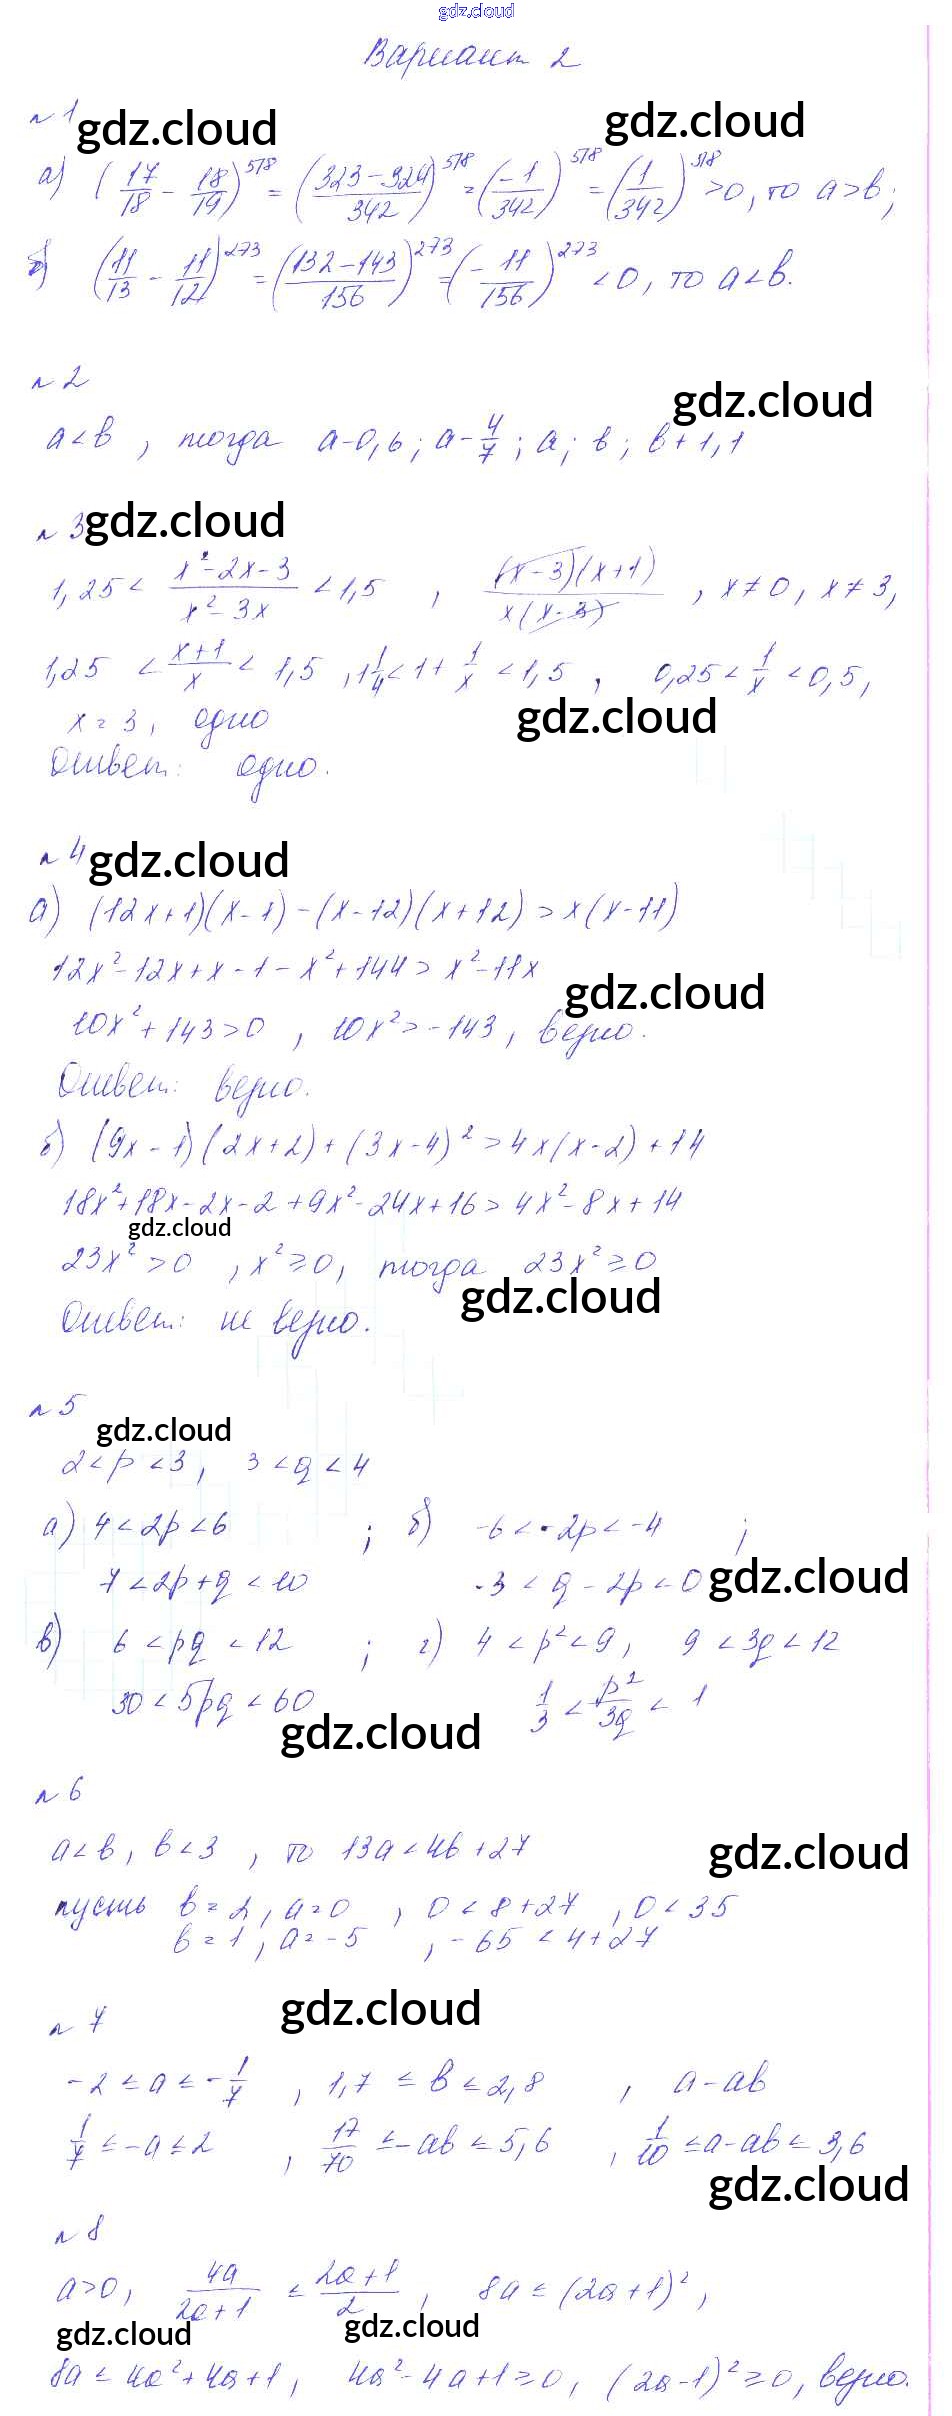 gdz.cloud
Вариант 2
n 1 gdz.cloud gdz.cloud
а) (17/18 - 18/19)^578 = ((323-324)/342)^578 = (-1/342)^578 = (1/342)^578 > 0, то a > b;
б) (11/13 - 11/12)^273 = ((132-143)/156)^273 = (-11/156)^273 < 0, то a < b.
n 2
gdz.cloud
a < b, тогда a-0,6; a-4/7; a; b; b+1,1
n 3 gdz.cloud
1,25 < (x²-2x-3)/(x²-3x) < 1,5, (x-3)(x+1)/x(x-3), x≠0, x≠3,
1,25 < (x+1)/x < 1,5, 1 1/4 < 1 + 1/x < 1,5, 0,25 < 1/x < 0,5,
x = 3, одно gdz.cloud
Ответ: одно.
n 4 gdz.cloud
а) (12x+1)(x-1)-(x-12)(x+12) > x(x-11)
12x²-12x+x-1-x²+144 > x²-11x
gdz.cloud
10x²+143 > 0, 10x² > -143, верно.
Ответ: верно.
б) (9x-1)(2x+2)+(3x-4)² > 4x(x-2)+14
18x²+18x-2x-2+9x²-24x+16 > 4x²-8x+14
gdz.cloud
23x² > 0, x² ≥ 0, тогда 23x² ≥ 0
gdz.cloud
Ответ: не верно.
n 5
gdz.cloud
2 < p < 3, 3 < q < 4
а) 4 < 2p < 6; б) -6 < -2p < -4;
7 < 2p+q < 10 -3 < q-2p < 0 gdz.cloud
в) 6 < pq < 12; г) 4 < p² < 9, 9 < 3q < 12
30 < 5pq < 60 1/3 < p²/3q < 1
gdz.cloud
n 6
a < b, b < 3, то 13a < 4b+27 gdz.cloud
пусть b = 2, a = 0, 0 < 8+27, 0 < 35
b = 1, a = -5, -65 < 4+27
gdz.cloud
n 7
-2 ≤ a ≤ -1/7, 1,7 ≤ b ≤ 2,8, a-ab
1/7 ≤ -a ≤ 2, 17/70 ≤ -ab ≤ 5,6, 1/10 ≤ a-ab ≤ 3,6
gdz.cloud
n 8
a > 0, 4a/(2a+1) ≤ (2a+1)/2, 8a ≤ (2a+1)²,
gdz.cloud gdz.cloud
8a ≤ 4a²+4a+1, 4a²-4a+1 ≥ 0, (2a-1)² ≥ 0, верно.